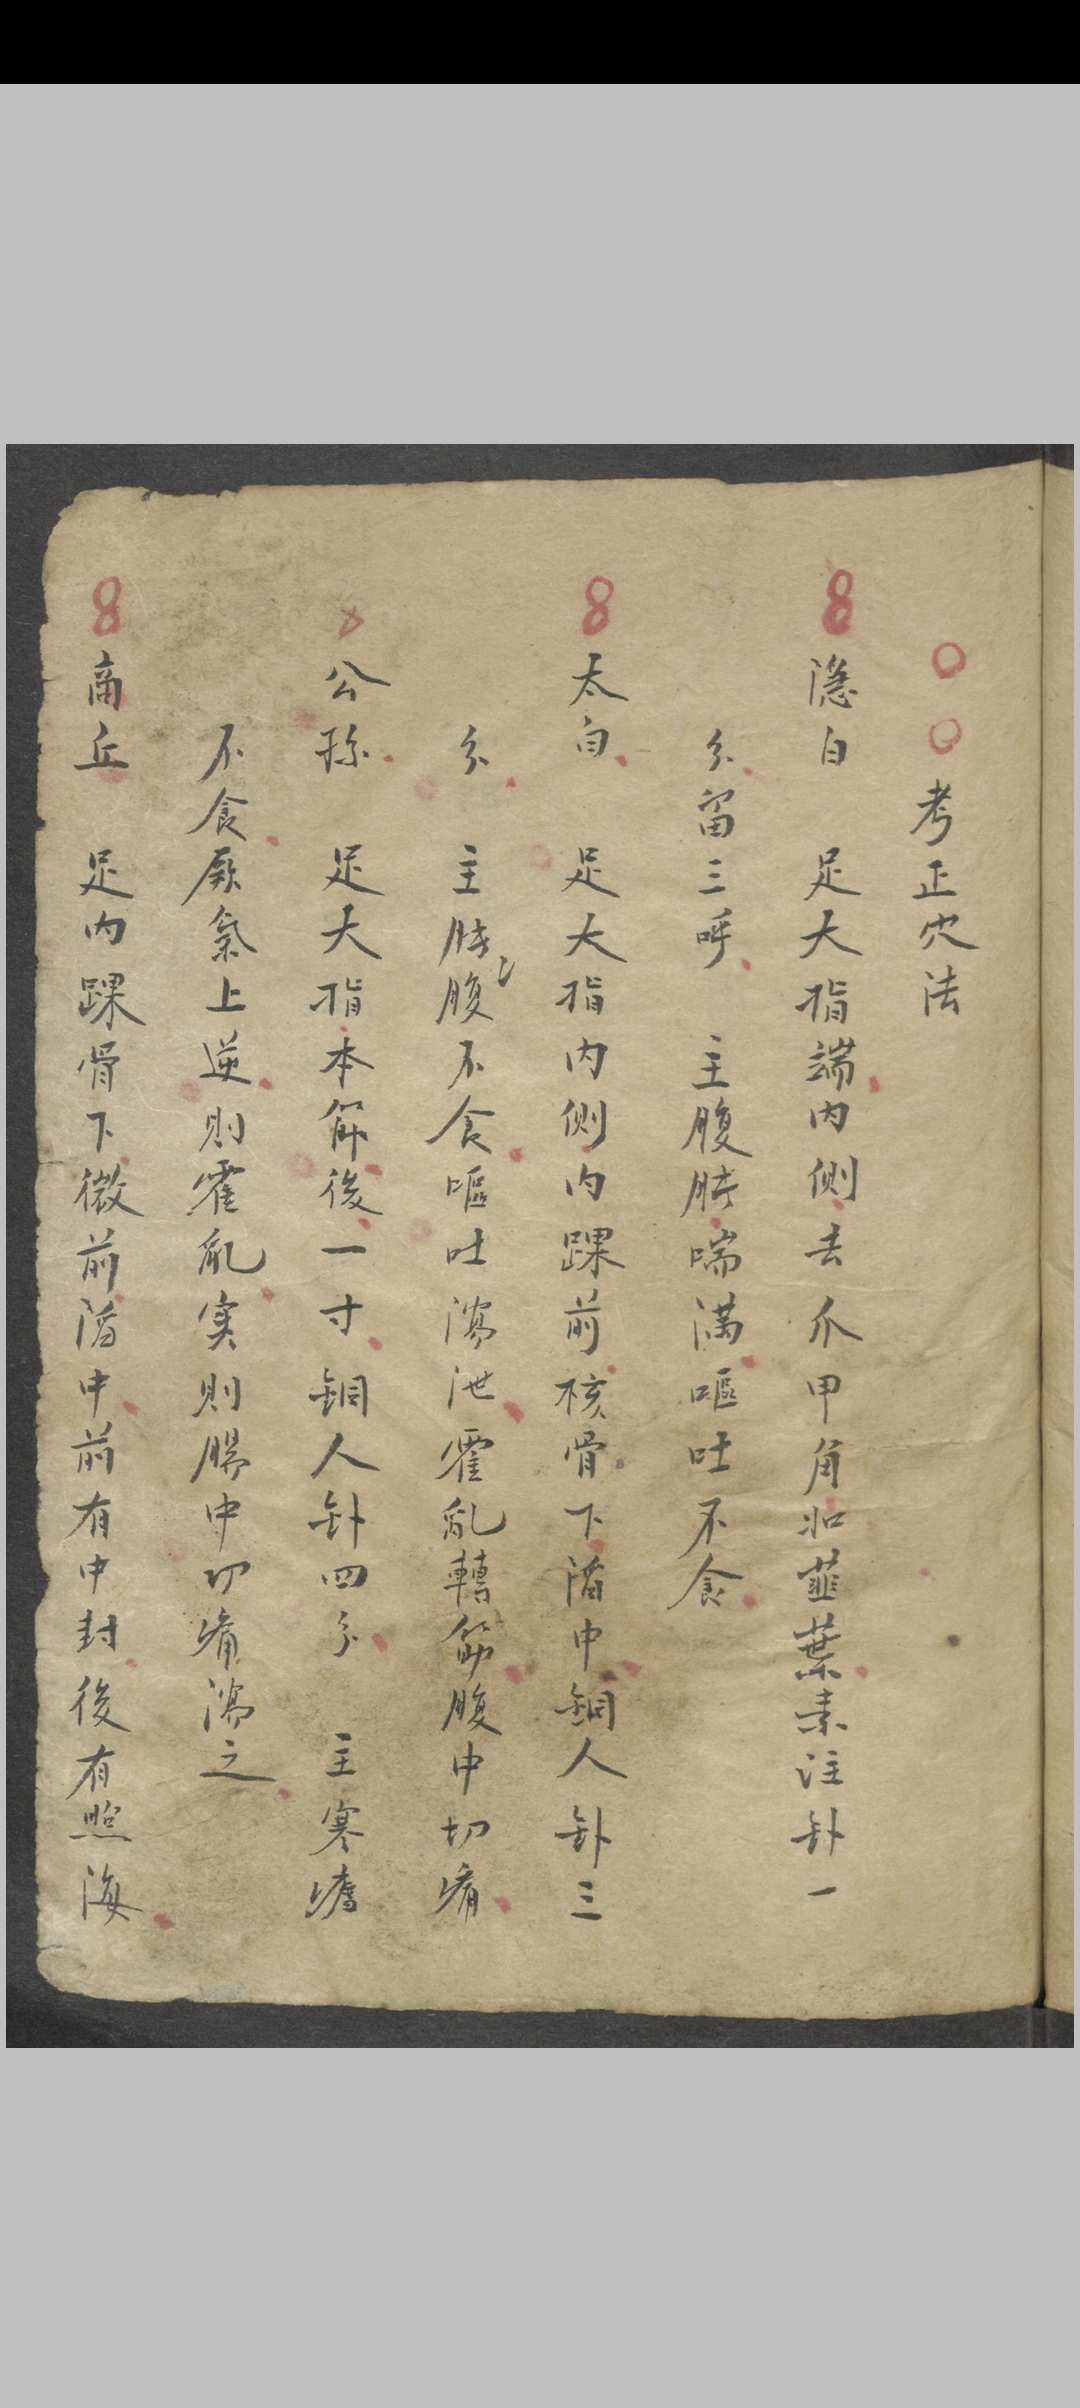 考正穴法
隱白 足大指端內側去爪甲角如韮葉素注針一
分留三呼 主腹脹喘滿嘔吐不食
太白 足大指內側內踝前核骨下陷中銅人針三
分 主腹脹不食嘔吐瀉泄霍亂轉筋腹中切痛
公孫 足大指本節後一寸銅人針四分 主寒瘧
不食厥氣上逆則霍亂実則腸中切痛瀉之
商丘 足內踝骨下微前陷中前有中封後有照海